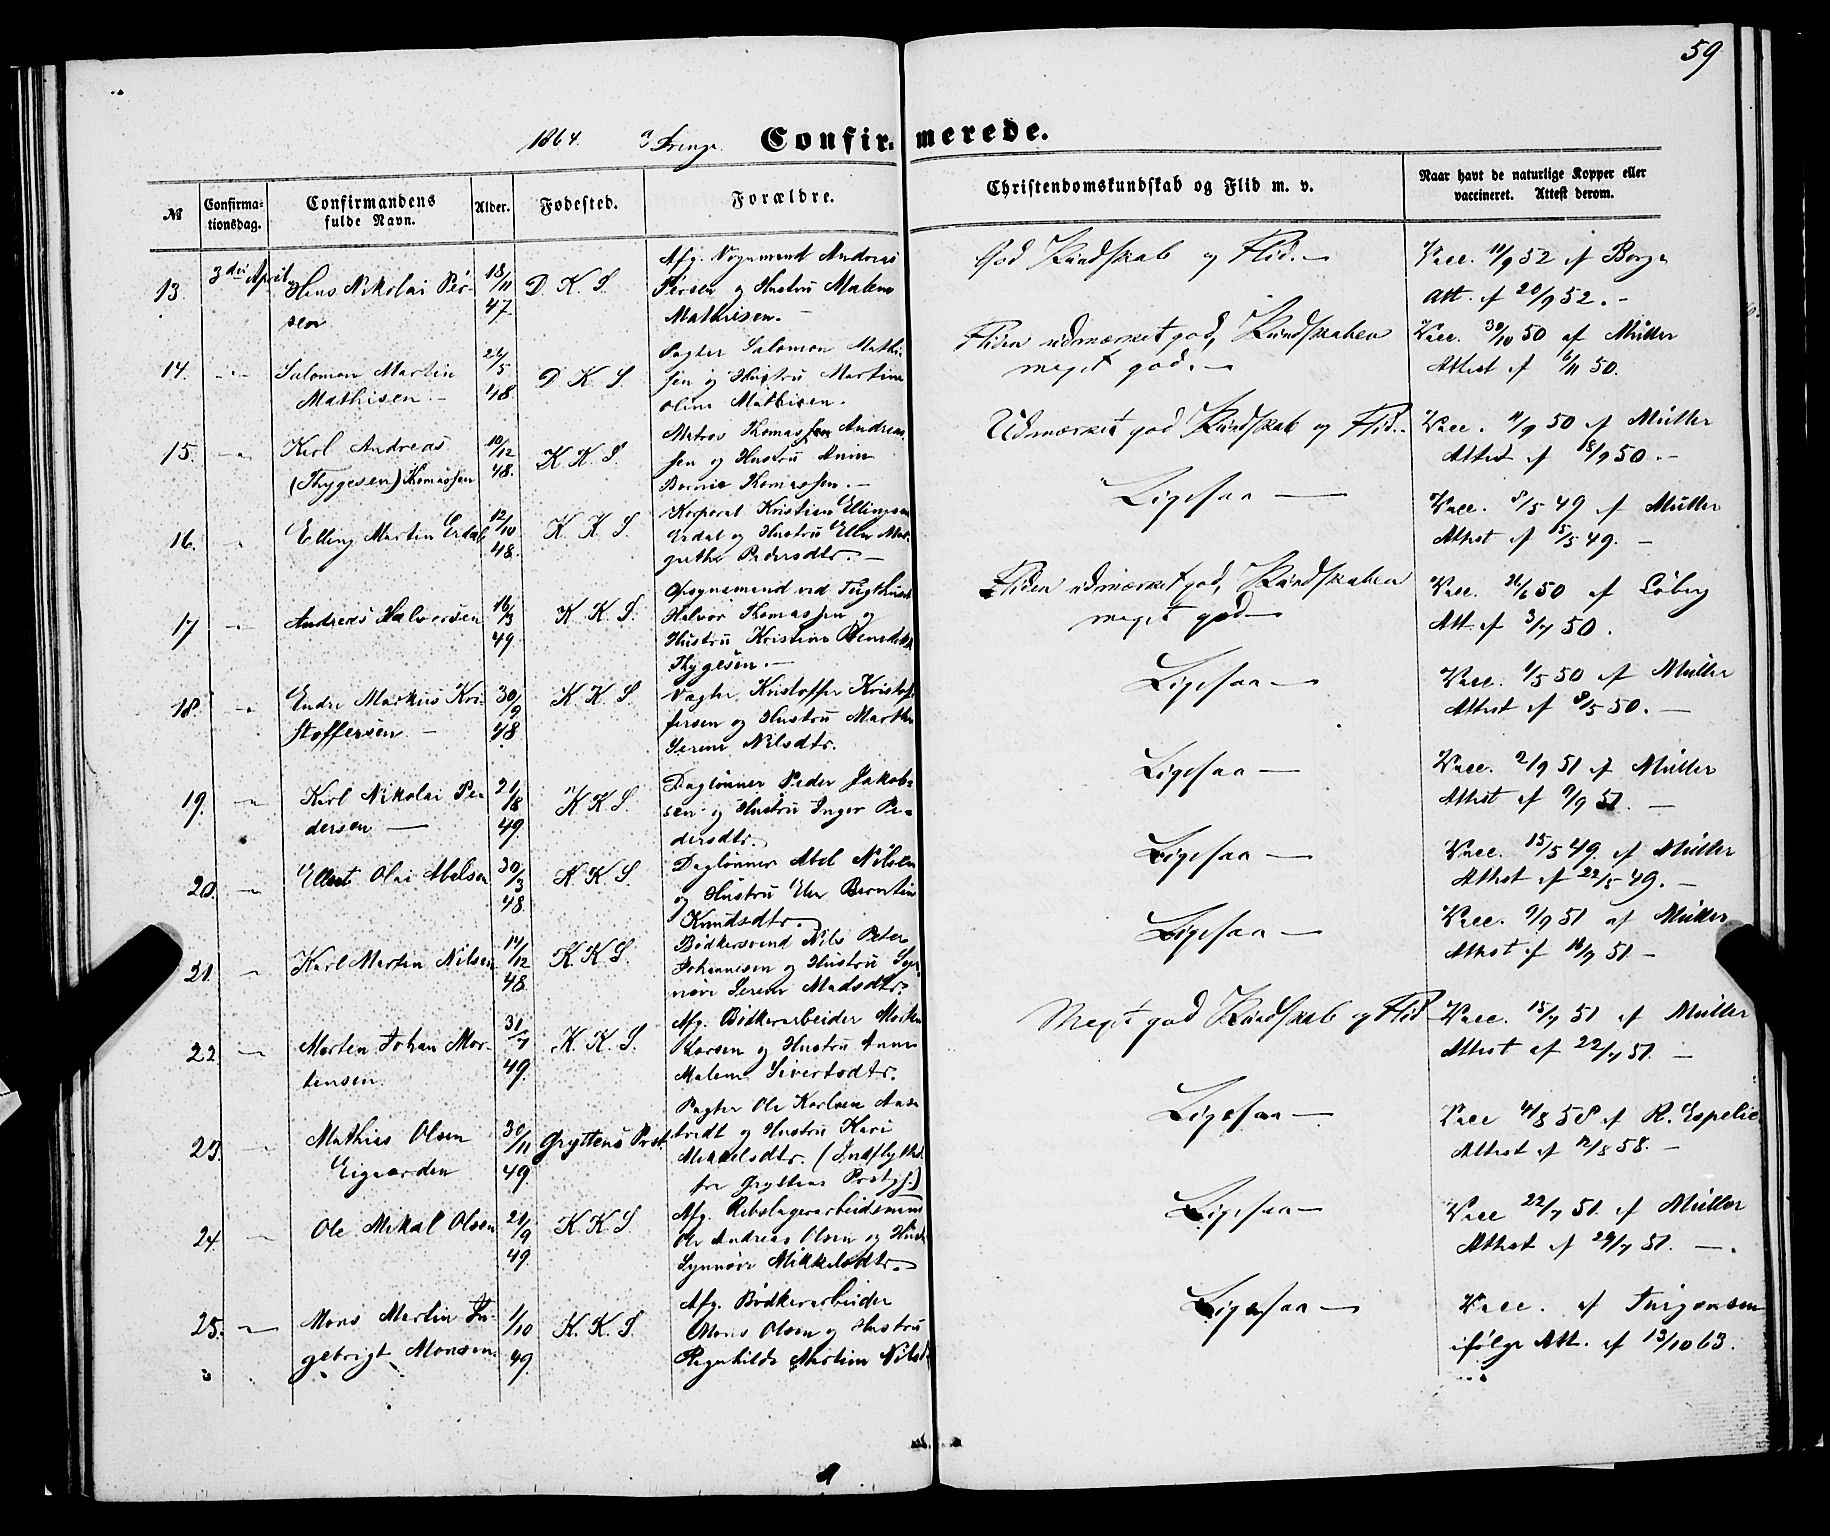 59
1864. Drenge. Confirmerede.
№ Confirmationsdag. Confirmandens fulde Navn. Alder. Fødested. Forældre. Christendomskundskab og Flid m. v. Naar havt de naturlige Kopper eller vaccineret. Attest derom.
13. 3die April Hans Nikolai Persen 18/11 47 D. K. S. Afg. Vognmand Andreas Persen og Hustru Malene Mathisen. God Kundskab og Flid. Vacc. 11/9 52 af Borge Att. af 20/9 52.
14. Salomon Martin Mathisen 26/5 48. D K S. Salomon Mathisen og Hustru Martine Oline Mathisen. Fliden udmærket god, Kundskaben meget god. Vacc. 30/10 50 af Müller Attest af 6/11 50.
15. Karl Andreas (Thygesen) Thomassen 10/12 48. K. K. S. Matros Thomas Andreassen og Hustru Thomassen. Udmærket god Kundskab og Flid. Vacc. 11/9 50 af Müller Attest af 18/9 50.
16. Elling Martin Erdal 12/10 48. K. K. S. Korporal Kristian Ellingsen Erdal og Hustru Ellen Margrethe Pedersdtr. Ligesaa Vacc. 8/5 49 af Müller Attest af 15/5 49.
17 Andreas Halvorsen 16/3 49. K. K. S. Opsynsmand ved Tugthuset Halvor Thomassen og Hustru Kristine Thygesen. Fliden udmærket god, Kundskaben meget god Vacc. 26/6 50 af Löberg Att. af 3/7 50.
18. Endre Markus Kristoffersen 30/9 48. K. K. S. Vægter Kristoffer Kristoffersen og Hustru Marthe Serene Nilsdtr. Ligesaa Vacc. 1/5 50 af Müller Attest af 8/5 50.
19. Karl Nikolai Pedersen 21/8 49. K K S. Daglønner Peder Jakobsen og Hustru Inger Pedersdtr. Ligesaa Vacc. 2/9 51 af Müller Attest af 9/9 51.
20. Ellert Olai Abelsen 30/3 48. K. K. S. Daglønner Abel Nilsen og Hustru Berntine Knudsdtr. Ligesaa Vacc. 15/5 49. af Müller Attest af 22/5 49.
21. Karl Martin Nilsen 14/12 48. K. K. S. Bødkersvend Nils Peter Johannesen og Hustru Synnøve Serene Madsdtr. Ligesaa Vacc. 9/9 51 af Müller Attest af 51.
22. Morten Johan Mortensen. 31/7 49. K. K. S. Afg. Bødkerarbeider Morten Larsen og Hustru Anne Malene Sivertsdtr. Meget god Kundskab og Flid Vacc. 15/7 51 af Müller Attest af 22/7 51.
23. Mathias Olsen 30/11 49. Gryttens Prst. Pagter Ole Karlsen og Hustru Kari Mikkelsdtr. (Indflyttet fra Gryttens Prstgj.) Ligesaa Vacc 4/8 58 af R. Espelie Attest af 12/8 58.
24. Ole Mikal Olsen 21/9 49. K. K. S. Afg. Rebslagerarbeidsmand Ole Andreas Olsen og Hustru Synnøve Mikkelsdtr. Ligesaa Vacc 22/7 51. af Müller Attest af 29/7 51.
25. Mons Martin Ingebrigt Monsen 1/10 49. K. K. S. Afg. Bødkerarbeider Mons Olsen og Hustru Ragnhilde Martine Nilsd. Ligesaa Vacc. af Jürgensen ifølge Att. af 13/10 63.